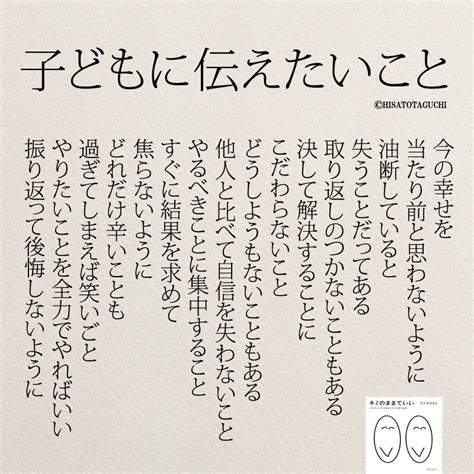 子どもに伝えたいこと
©HISATOTAGUCHI
今の幸せを
当たり前と思わないように
油断していると
失うことだってある
取り返しのつかないこともある
決して解決することに
こだわらないこと
どうしようもないこともある
他人と比べて自信を失わないこと
やるべきことに集中すること
すぐに結果を求めて
焦らないように
どれだけ辛いことも
過ぎてしまえば笑いごと
やりたいことを全力でやればいい
振り返って後悔しないように
キミのままでいい